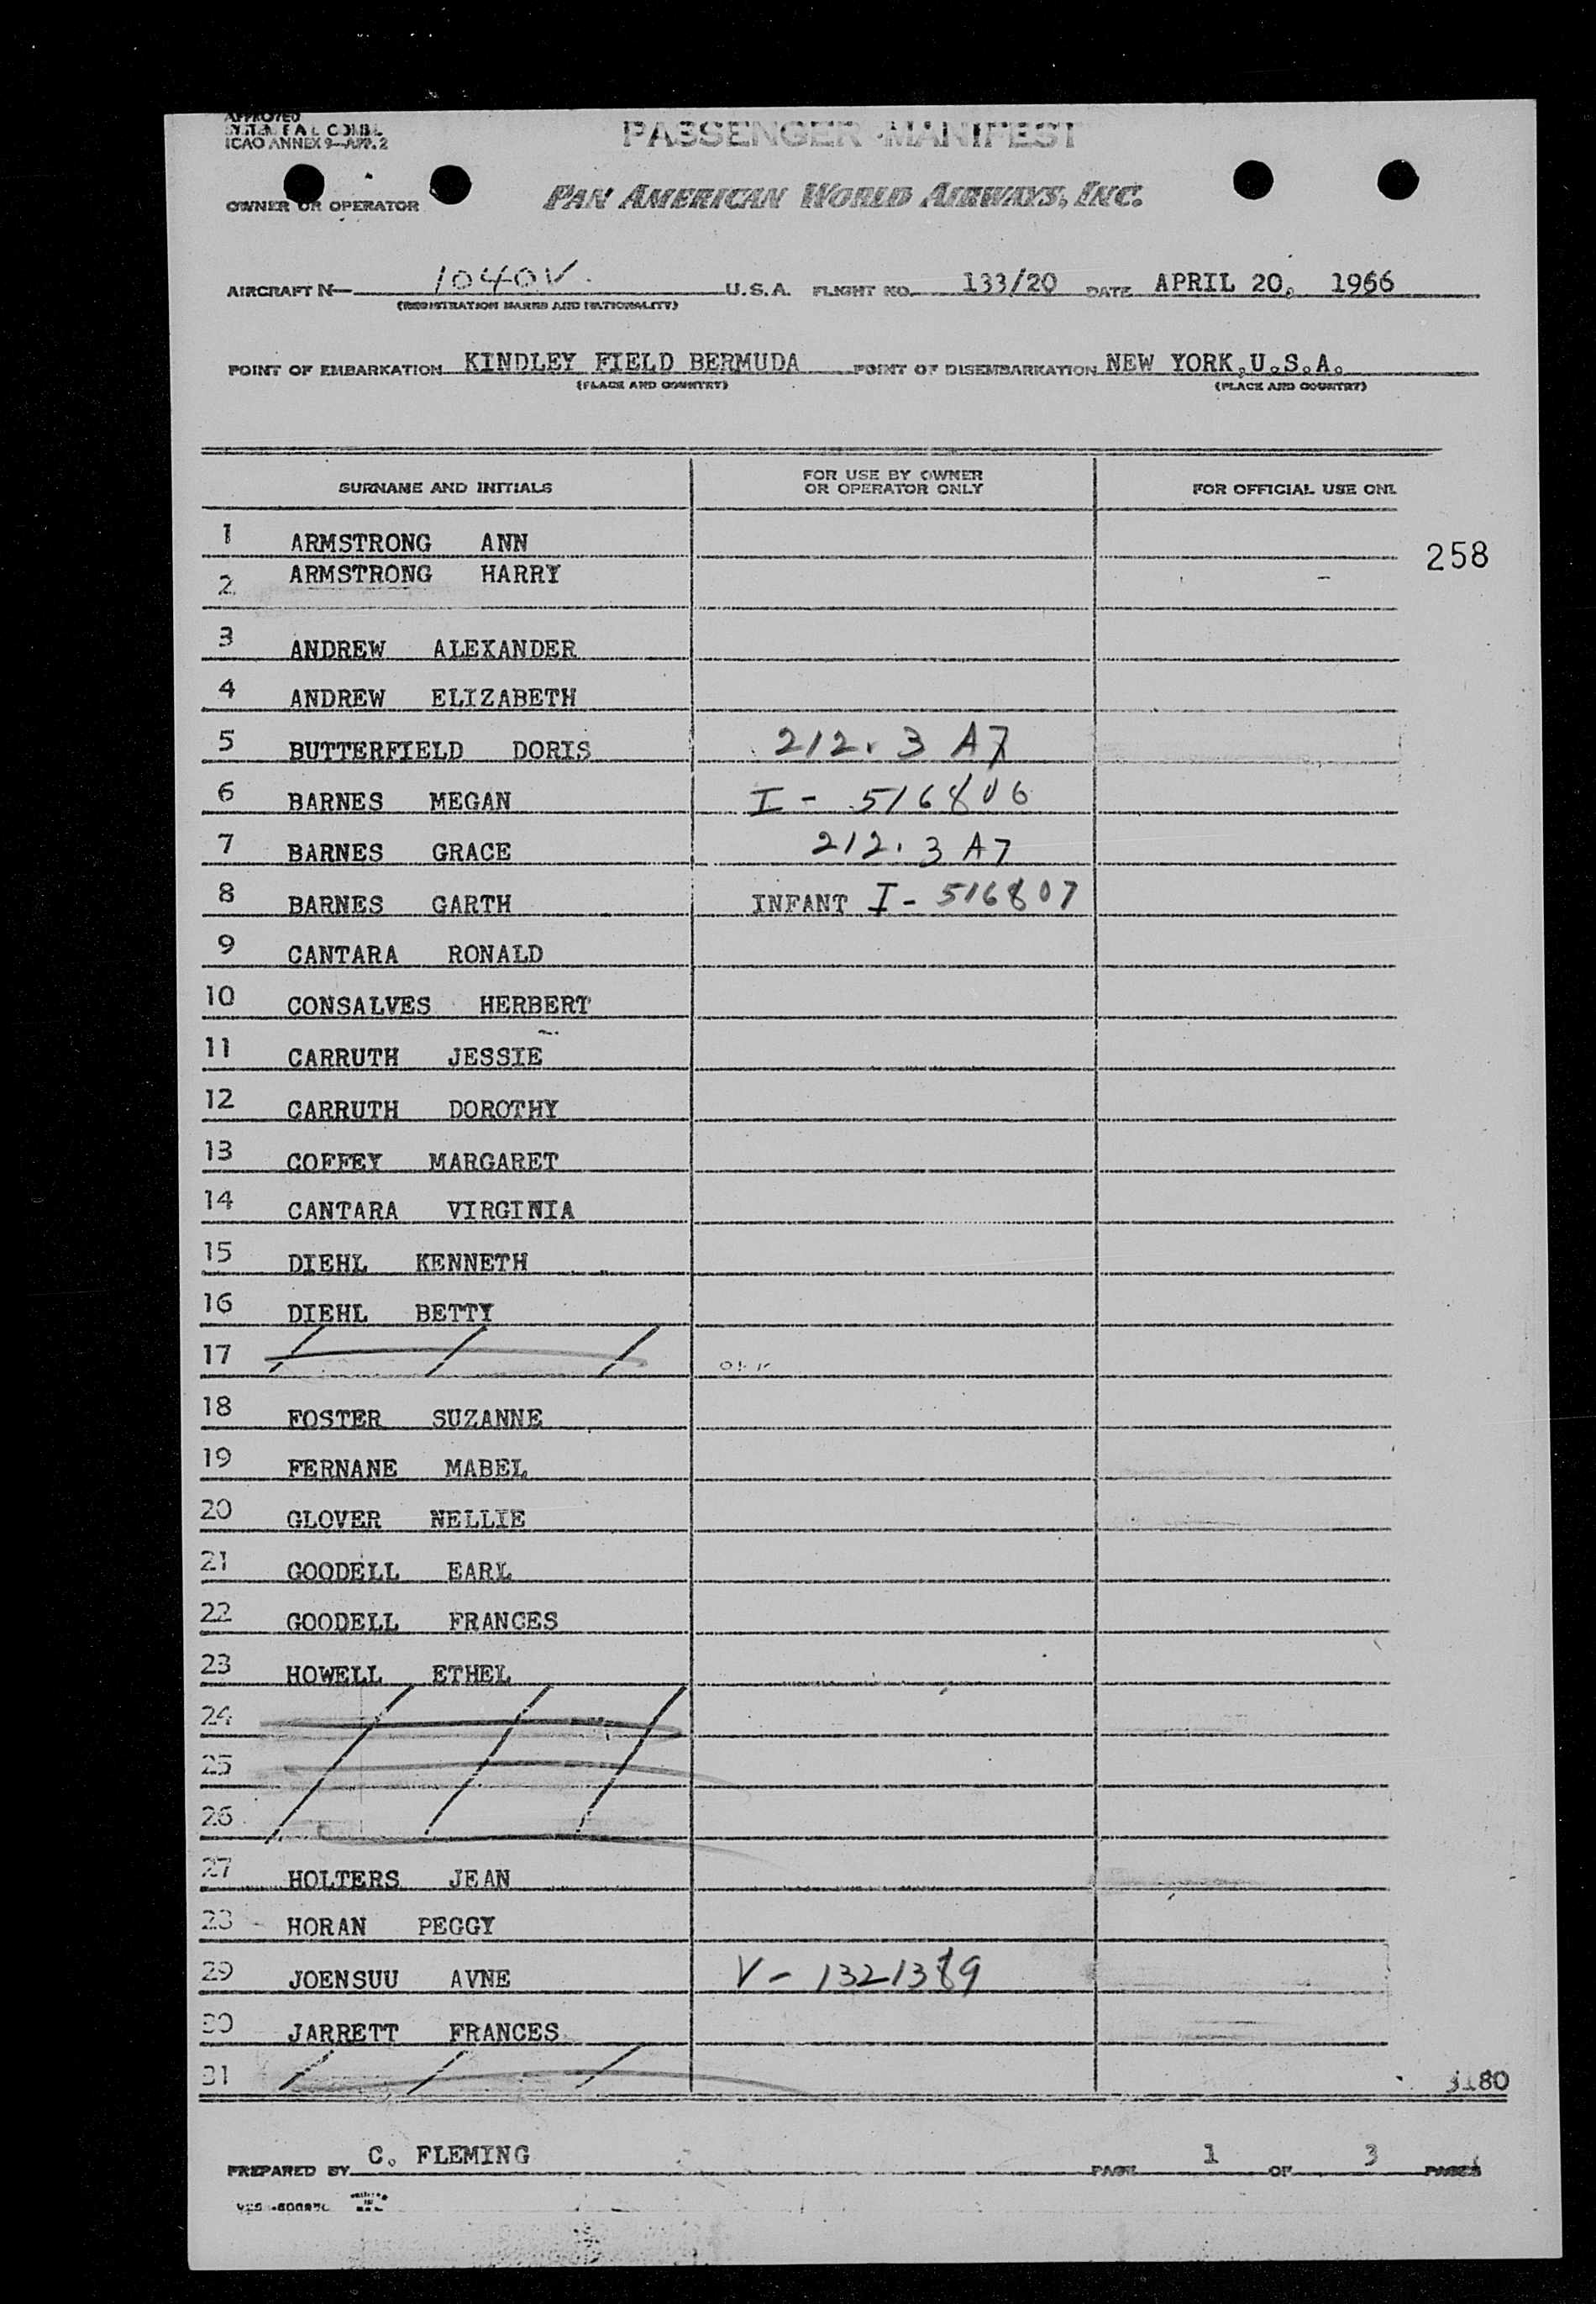 APPROVED
SYSTEM F A L COMM.
ICAO ANNEX 9—APP. 2
PASSENGER MANIFEST
OWNER OR OPERATOR
PAN AMERICAN WORLD AIRWAYS, INC.
AIRCRAFT N— 1040V U.S.A. FLIGHT NO. 133/20 DATE APRIL 20, 1966
(REGISTRATION MARKS AND NATIONALITY)
POINT OF EMBARKATION KINDLEY FIELD BERMUDA POINT OF DISEMBARKATION NEW YORK,U.S.A.
(PLACE AND COUNTRY) (PLACE AND COUNTRY)
SURNAME AND INITIALS FOR USE BY OWNER OR OPERATOR ONLY FOR OFFICIAL USE ONL
1 ARMSTRONG ANN
258
2 ARMSTRONG HARRY
3 ANDREW ALEXANDER
4 ANDREW ELIZABETH
5 BUTTERFIELD DORIS 212.3 A7
6 BARNES MEGAN I - 516806
7 BARNES GRACE 212.3 A7
8 BARNES GARTH INFANT I - 516807
9 CANTARA RONALD
10 CONSALVES HERBERT
11 CARRUTH JESSIE
12 CARRUTH DOROTHY
13 COFFEY MARGARET
14 CANTARA VIRGINIA
15 DIEHL KENNETH
16 DIEHL BETTY
17
18 FOSTER SUZANNE
19 FERNANE MABEL
20 GLOVER NELLIE
21 GOODELL EARL
22 GOODELL FRANCES
23 HOWELL ETHEL
24
25
26
27 HOLTERS JEAN
28 HORAN PEGGY
29 JOENSUU AVNE V - 1321389
30 JARRETT FRANCES
31
3180
PREPARED BY C. FLEMING PAGE 1 OF 3 PAGES